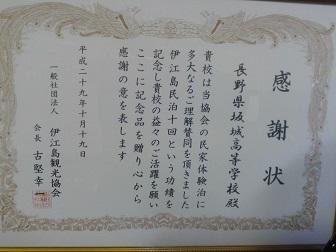 感謝状
長野県坂城高等学校殿
貴校は当協会の民家体験泊に
多大なるご理解賛同を頂きました
伊江島民泊十回という功績を
記念し貴校の益々のご活躍を願い
ここに記念品を贈り心から
感謝の意を表します
平成二十九年十月十九日
一般社団法人 伊江島観光協会
会長 古堅幸一